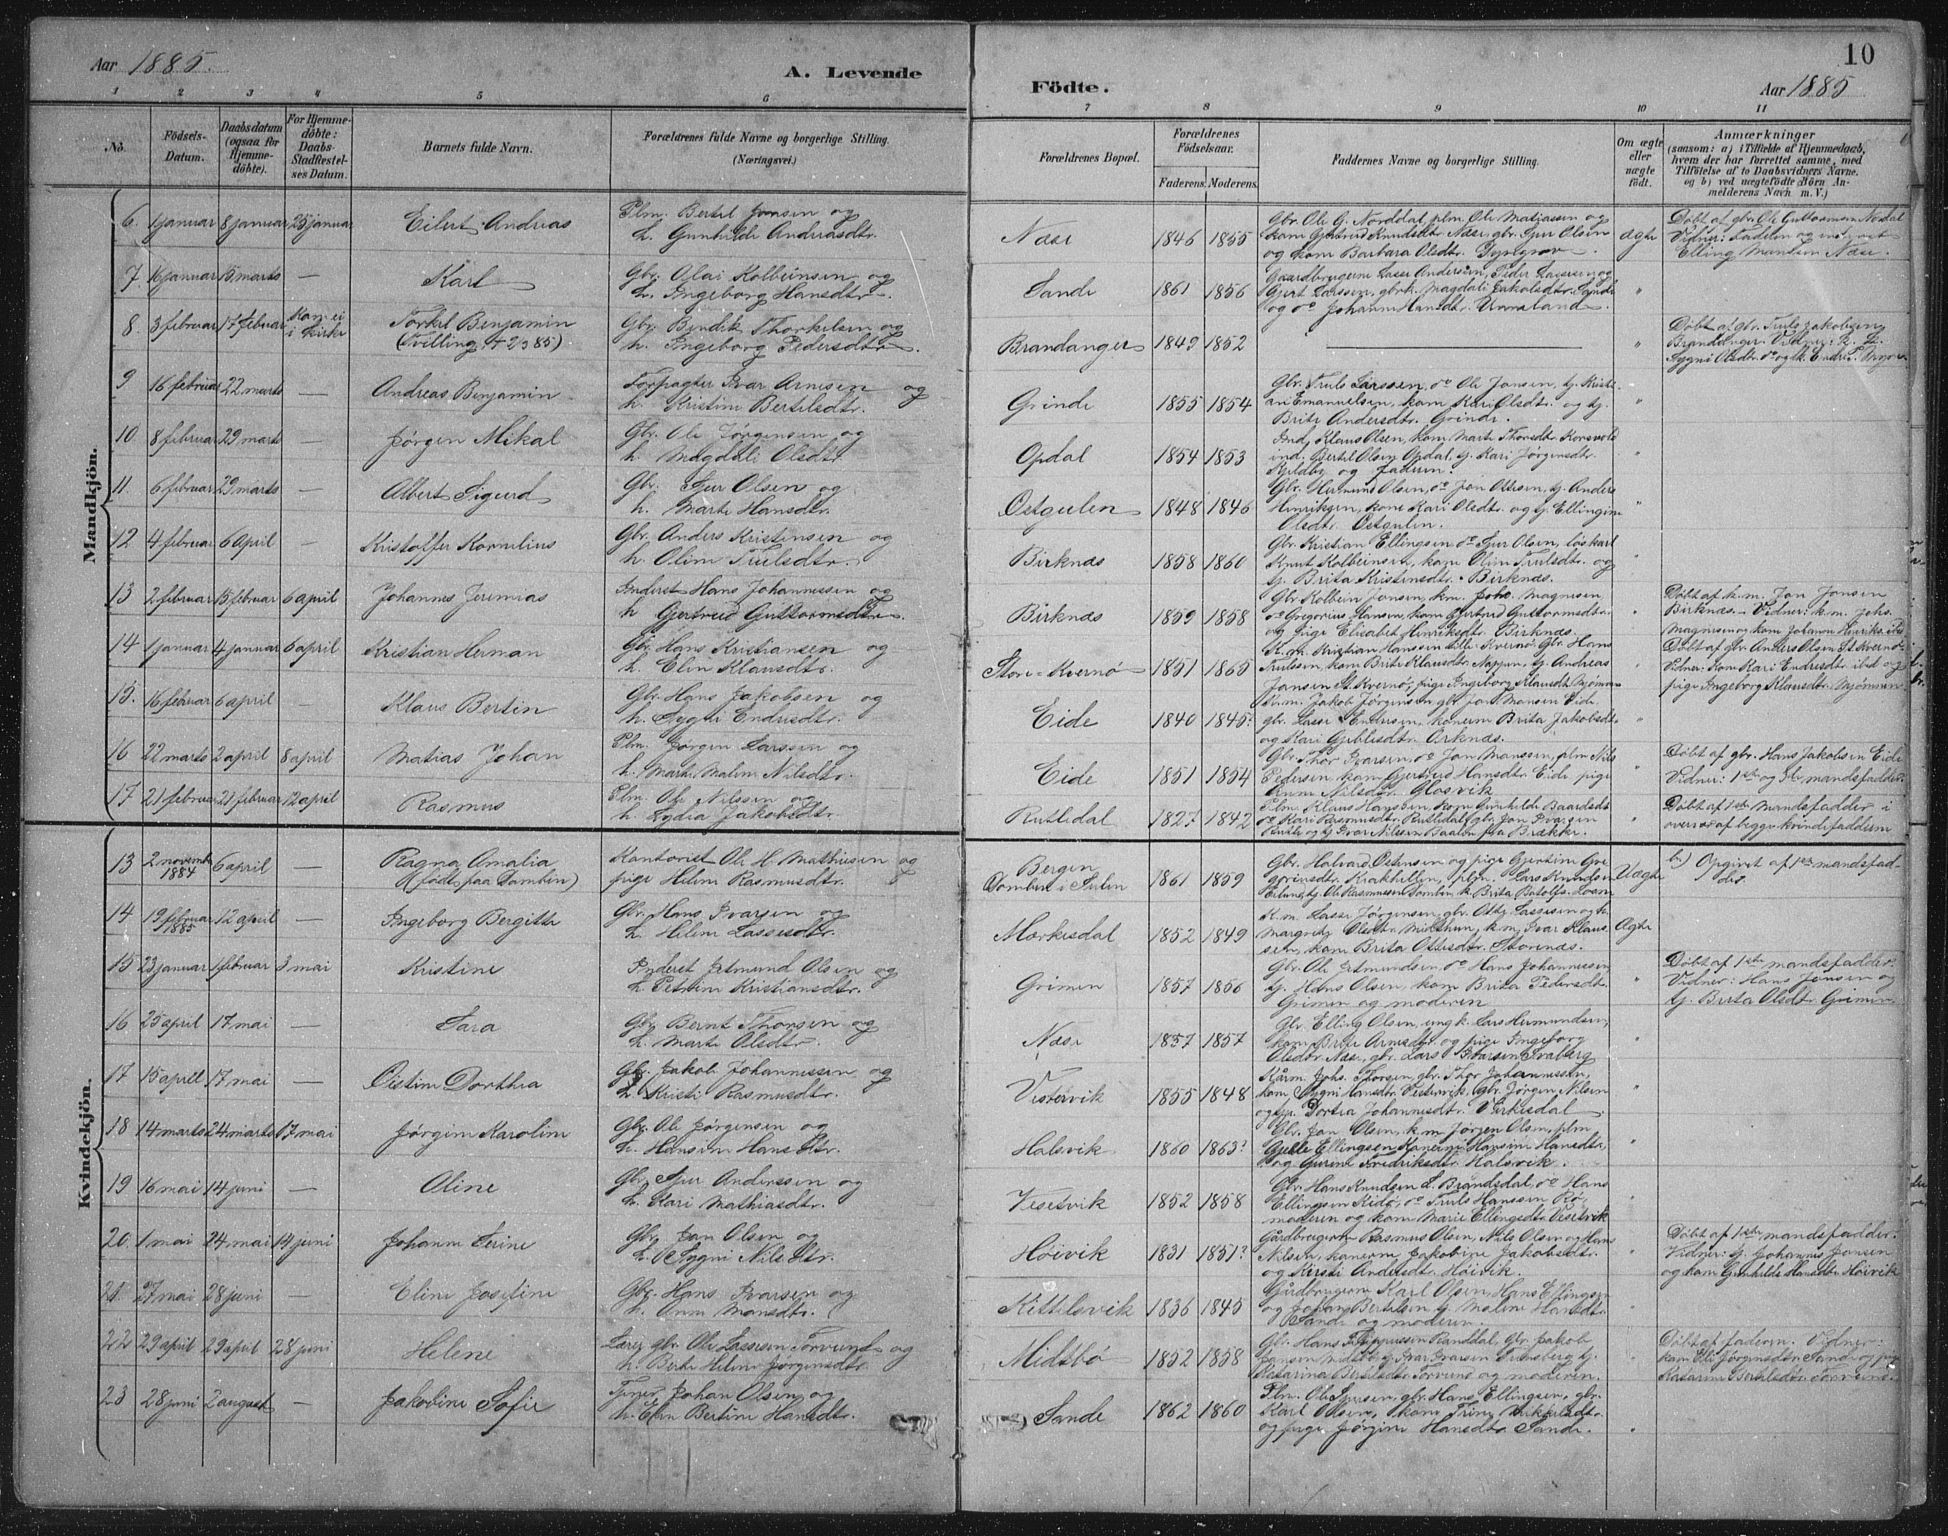 Aar 1885.
A. Levende
Födte.
Aar 1885
10
1 2 3 4 5 6 7 8 9 10 11
No.
Födsels-Datum.
Daabsdatum (ogsaa for Hjemme-döbte).
For Hjemme-döbte: Daabs-Stadfæstel-ses Datum.
Barnets fulde Navn.
Forældrenes fulde Navne og borgerlige Stilling. (Næringsvei.)
Forældrenes Bopæl.
Forældrenes Födselsaar.
Faderens. Moderens.
Faddernes Navne og borgerlige Stilling.
Om ægte eller uægte födt.
Anmærkninger
(saasom: a) i Tilfælde af Hjemmedaab, hvem der har forrettet samme, med Tilföielse af to Daabsvidners Navne. og b) ved uægtefödte Börn An-melderens Navn m. V.)
Mandkjön.
6. 1 januar 8 januar 25 januar Eilert Andreas
Plm. Bertil Jonsen og
h. Gunhilde Andreasdtr.
Næse 1846 1855
Gbr. Ole G. Norddal, plm. Ole Matiassen og
kom Gjertrud Knudsdtr. Næse, gbr. Sjur Olsen
og kom Barbara Olsdtr.
ægte
Döbt af gbr. Ole Guttormsen Nordal
Vidner: Faderen og
Elling Næse.
7 16 januar 15 marts — Karl
Gbr. Olai Kolbeinsen og
h. Ingeborg Hansdtr.
Sande 1861 1856
Gaardbrugerne Lasse Andersen, Peder Larssen og
Gjert Larssen, gbrk. Magdali Jakobsdtr. Sande
og do Johanne Hansdtr.
"
8. 3 februar 17 februar Kom ei i kirke
Torkel Benjamin
(Tvilling + 2/3 85).
Gbr. Bendik Thorkelsen og
h. Ingeborg Pedersdtr.
Brandanger 1849 1852 —
"
Döbt af gbr. Truls Jakobsen
Brandanger. Vidner:
Sygni Olsdtr.
9 16 februar 22 marts — Andreas Benjamin
Forpagter Ivar Arnesen og
h. Kristine Bertelsdtr.
Grinde 1855 1854
Gbr. Truls Larssen, do Ole Jansen, tj. Kristi-
an Emanuelsen, kom Kari Olsdtr. og tj.
Brite Andersdtr. Grinde.
"
10. 8 februar 29 marts — Jørgen Mikal
Gbr. Ole Jørgensen og
h. Magdali Olsdtr.
Opdal 1854 1853
Ind. Klaus Olsen, kom Marte Thorsdtr.
ind. Bertil Olsen Opdal, tj. Kari Jörgensdtr.
og faderen.
"
11. 6 februar 29 marts — Albert Sigurd
Gbr. Sjur Olsen og
h. Marte Hansdtr.
Østgulen 1848 1846
Gbr. Hermund Olsen, do Jon Ottesen, tj. Anders
Henriksen, kone Kari Olsdtr. og tj. Ellingine
Olsdtr. Østgulen.
"
12 4 februar 6 april — Kristoffer Kornelius
Gbr. Anders Kristensen og
h. Oline Trulsdtr.
Birknæs 1858 1860
Gbr. Kristian Ellingsen, do Sjur Olsen, löskarl
Knut Kolbeinsen, kom Oline Trulsdtr. og
tj. Brita Kristensdtr. Birknæs.
13 2 februar 15 februar 6 april Johannes Jeremias
Inderst Hans Johannessen og
h Gjertrud Guttormsdtr.
Birknæs 1859 1858
Gbr. Kolbein Jonsen, k.m. Joh. Magnesen
do Gregorius Hansen, kom Gjertrud Guttormsdtr.
og pige Elisabet Henriksdtr. Birknæs.
Döbt af k.m. Jon Jonsen
Birknæs. Vidner: k.m. Johs.
Magnesen og kom Johanne
14 1 januar 4 januar 6 april Kristian Herman
Gbr. Hans Kristiansen og
h. Elen Klausdtr.
Store-Kvernø 1851 1865
K.m. Kristian Hanssen Lille Kvernø, Gbr. Hans
Trulssen, kom Brite Klausdtr. Nappen, tj. Andreas
Jansen St. Kvernø, pige Ingeborg Klausdtr. Mjømnen
Döbt af gbr. Anders Olsen St. Kvernø
Vidner: Kom Kari Endresdtr. ibid og
pige Ingeborg Klausdtr. Mjømnen
15. 16 februar 6 april — Klaus Bertin
Gbr. Hans Jakobsen og
h. Sygni Endresdtr.
Eide 1840 1845?
K.m. Jakob Jörgensen, gbr. Jon Monsen Eide,
gbr. Lasse Endresen, konerne Brita Jakobsdtr.
og Kari Orknæs.
"
16 22 marts 2 april 8 april Matias Johan
Plm. Jørgen Larssen og
h. Marte Malene Nilsdtr.
Eide 1851 1854
Gbr. Thor Ivarsen, do Jon Monssen, plm Nils
Pedersen, kom Gjertrud Hansdtr. Eide, pige
Anne Nilsdtr. Glosvik
"
Döbt af gbr. Hans Jakobsen Eide
Vidner: 1ste og 3die mandsfadder.
17 21 februar 21 februar 12 april Rasmus
Plm. Ole Nilssen og
h. Lydia Jakobsdtr.
Rutledal 1827 1842
Plm. Klaus Hanssen, kom Gunhilde Baardsdtr.
do Kari Rasmusdtr. Rutledal, gbr. Jon Ivarsen
Rutle og tj. Ivar Nilsen Baalen fra Brække.
"
Döbt af 1ste mandsfadder i
overvær af begge kvindefaddere
Kvindekjön.
13 2 novemb. 1884 6 april —
Ragna Amalia
(født paa Domben)
Kontorist Ole H. Mathiesen og
pige Helene Rasmusdtr.
Bergen
Domben i Sulen 1861 1859
Gbr. Halvard Ostensen og pige Gjertine Gre-
gorinsdtr. Krakhellen, plm. Lars Knudsen
Ole Rasmussen Domben, k. Brita
Uægte
b.) Opgivet af 1ste mandsfad-
der.
14 19 februar 1885 12 april — Ingeborg Bergitte
Gbr. Hans Ivarsen og
h. Helene Lassesdtr.
Mærkesdal 1852 1849
K.m. Lasse Jørgensen, gbr. Otto Lassesen og k.
Margrete Olsdtr. Midthun, k.m. Ivar Klaus-
sen, kom Brita Ottesdtr. Storenæs.
Ægte
15 23 januar 1 februar 3 mai Kristine
Inderst Jetmund Olsen og
h. Petrine Kristiansdtr.
Grimen 1857 1856
Gbr. Ole Jetmundsen, do Hans Johannessen,
tj. Hans Olsen, kom Brita Pedersdtr.
Grimen og moderen
"
Döbt af 1ste mandsfadder.
Vidner: Hans Jonsen og
tj. Brita Olsdtr. Grimen
16 25 april 17 mai — Sara
Gbr. Bernt Thorsen og
h. Marte Olsdtr.
Næse 1857 1857
Gbr. Elling Olsen, ungk. Lars Hermundsen,
kom Brite Arnesdtr. og pige Ingeborg
Olsdtr. Næse, gbr. Lars Ivarsen Svaberg
17 15 april 17 mai — Oistine Dorthea
Gbr. Jakob Johannessen og
h. Kristi Rasmusdtr.
Vestervik 1855 1848
Kårm. Johs. Thorsen, gbr. Thor Johannessen,
kom Sygni Hansdtr. Vestervik, gbr. Jörgen Nilsen
og tj. Dortea Johannesdtr. Virkesdal
"
18 14 marts 24 marts 17 mai Jørgine Karoline
Gbr. Ole Jørgensen og
h. Hansine Hansdtr.
Halsvik 1860 1863?
Gbr. Jan Olsen, k.m. Jörgen Olsen, plm
Gjelle Ellingsen, konerne Hansine Hansdtr.
og Gurine Fredriksdtr. Halsvik.
"
19 16 mai 14 juni — Oline
Gbr. Sjur Anderssen og
h. Kari Mathiasdtr.
Vesetvik 1852 1858
Gbr. Hans Knudsen L. Brandsdal, do Hans
Ellingsen Eide, do Truls Hanssen Rø,
moderen og kom Marie Ellingsdtr. Vesetvik
"
20. 1 mai 24 mai 14 juni Johanne Serine
Gbr. Jan Olsen og
h. Sygni Nilsdtr.
Høivik 1831 1851?
Gårdbrugerne Rasmus Olsen, Nils Olsen og Hans
Nilsen, konerne Jakobine Jakobsdtr.
og Kersti Andersdtr. Høivik.
"
Döbt af 1ste mandsfadder.
Vidner: tj. Johannes Jansen
og kom Gunhilde Hansdtr. Høivik
21. 27 mai 28 juni — Eline Josefine
Gbr. Hans Ivarsen og
h. Anne Monsdtr.
Kittelsvik 1836 1845
Gårdbrugerne Karl Olsen, Hans Ellingsen
og Johan Bertelsen, tj. Malene Hansdtr.
Sande og moderen.
"
22 29 april 29 april 28 juni Helene
Lærer gbr. Ole Lassesen Torvund og
h. Berte Helene Jørgensdtr.
Midtbø 1852 1858
Gbr. Hans Filippussen Randdal, Gbr. Jakob
Jansen Midtbø, tj. Ivar Ivarsen
Katarina Bertelsdtr. Torvund og moderen.
"
Döbt af faderen. Vidner:
kom Eli Jørgensdtr. Sande og pige
Katarine Bertelsdtr. Torvund.
23 28 juni 2 august — Jakobine Sofie
Johan Olsen og
h. Elen Bertine Hansdtr.
Sande 1862 1860
Plm. Ole Sjursen, gbr. Hans Ellingsen, gbr.
Karl Olsen, kom Trine Mikkelsdtr.
og pige Jørgine Hansdtr. Sande.
"